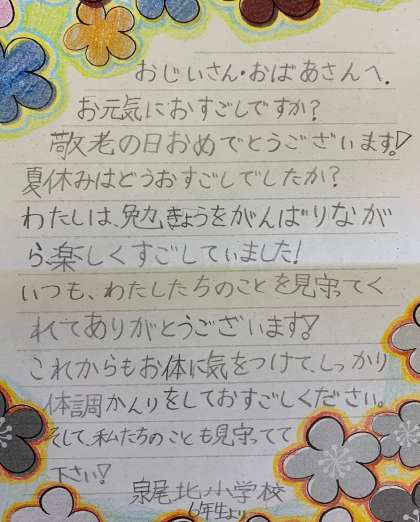 おじいさん・おばあさんへ.
お元気におすごしですか?
敬老の日おめでとうございます!
夏休みはどうおすごしでしたか?
わたしは、勉きょうをがんばりなが
ら、楽しくすごしていました!
いつも、わたしたちのことを見守ってく
れてありがとうございます!
これからもお体に気をつけて、しっかり
体調かんりをしておすごしください。
そして、私たちのことも見守ってて
下さい!
泉尾北小学校
6年生より